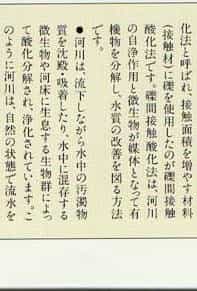 化法と呼ばれ、接触面積を増やす材料
(接触材)に礫を使用したのが礫間接触
酸化法です。礫間接触酸化法は、河川
の自浄作用と微生物が媒体となって有
機物を分解し、水質の改善を図る方法
です。
●河川は、流下しながら水中の汚濁物
質を沈殿・吸着したり、水中に混存する
微生物や河床に生息する生物群によっ
て酸化分解され、浄化されています。こ
のように河川は、自然の状態で流水を